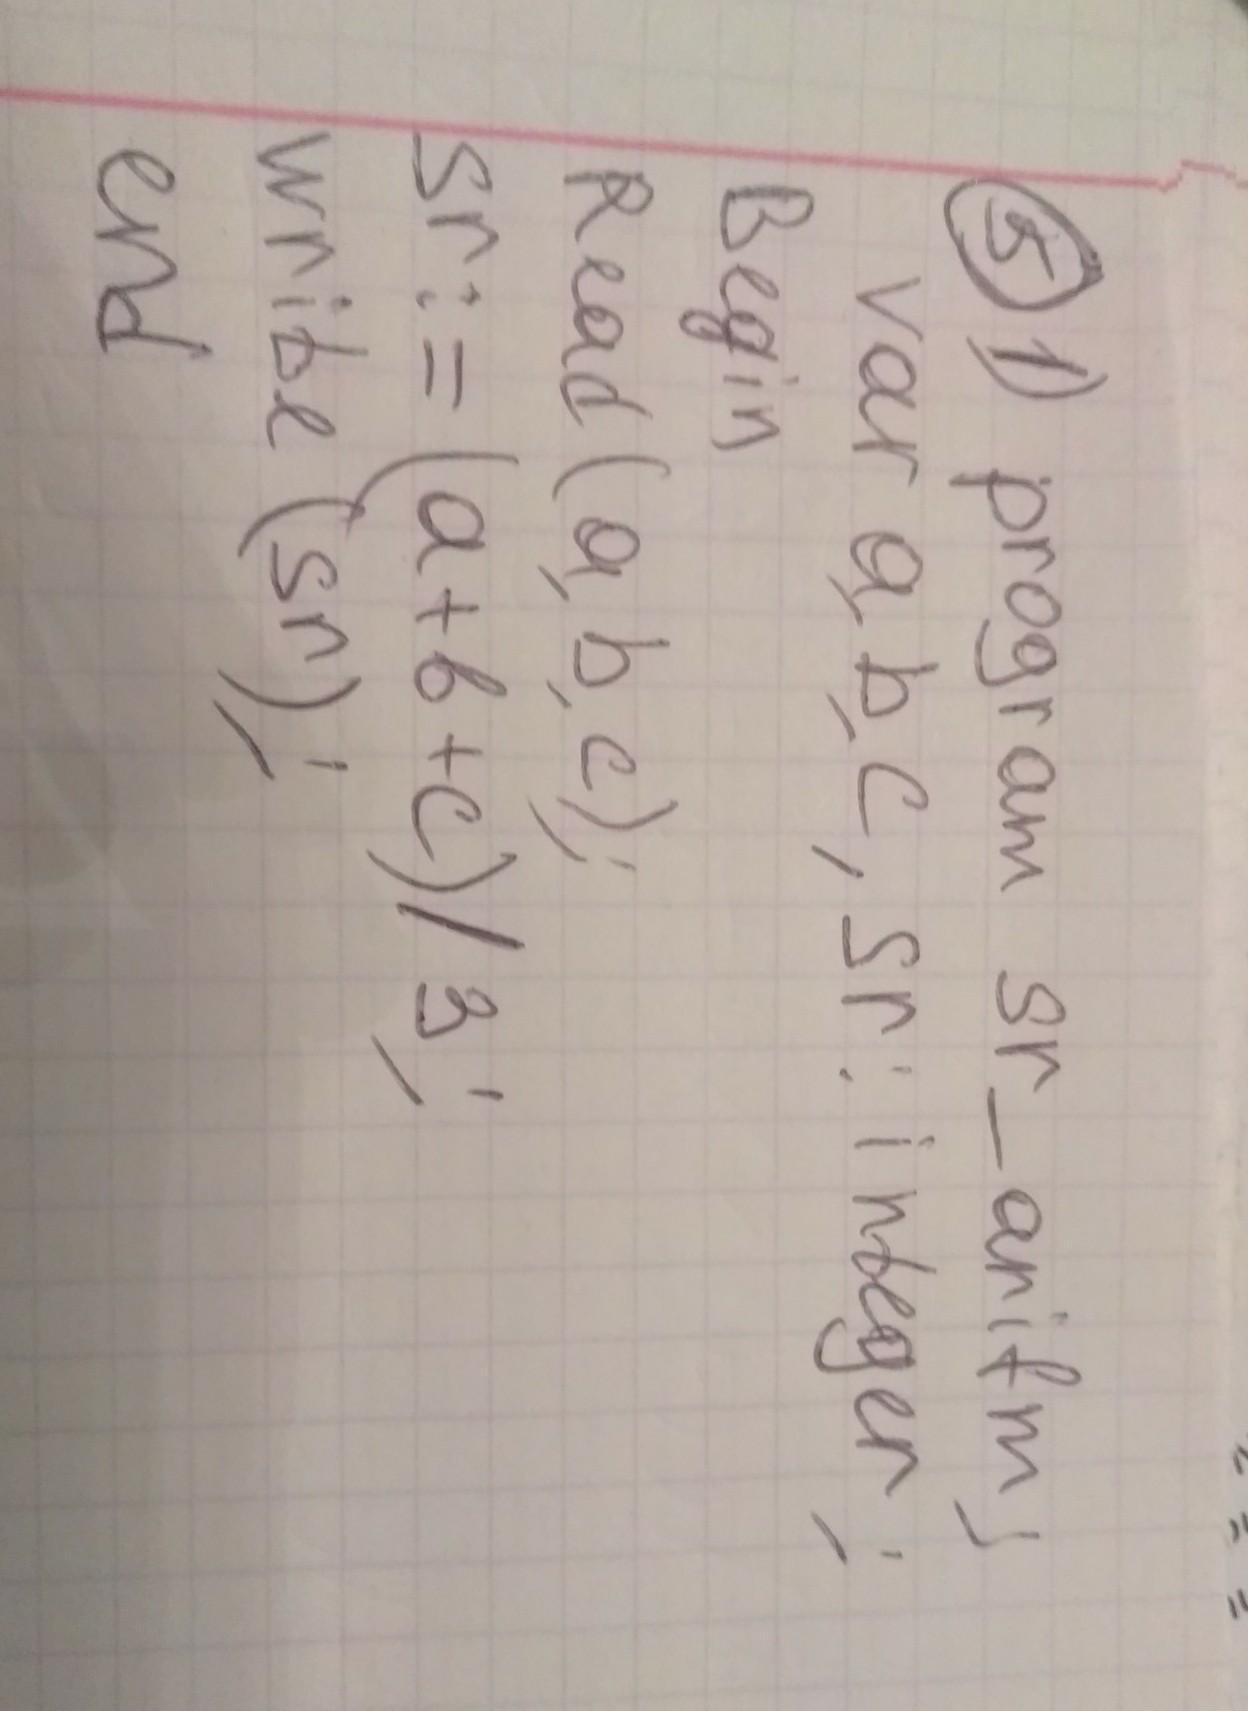 5 1) program sr_arifm;
var a, b, c, sr: integer;
Begin
Read (a, b, c);
Sr := (a+b+c)/3;
write (sr);
end